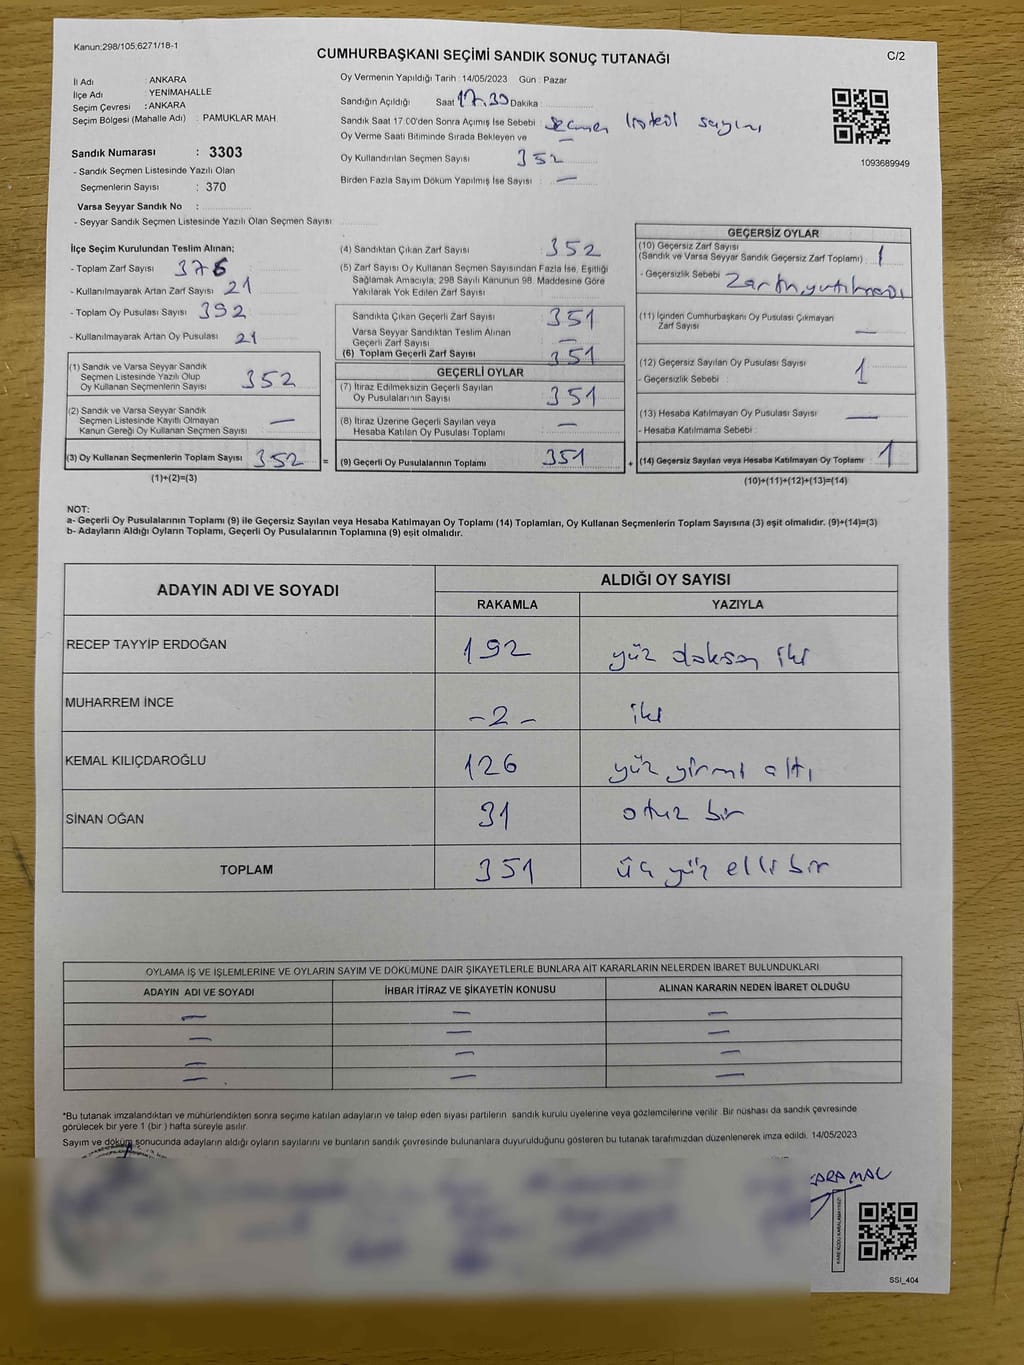 Kanun:298/105;6271/18-1
C/2
CUMHURBAŞKANI SEÇİMİ SANDIK SONUÇ TUTANAĞI
İl Adı : ANKARA
İlçe Adı : YENİMAHALLE
Seçim Çevresi : ANKARA
Seçim Bölgesi (Mahalle Adı) : PAMUKLAR MAH.
Sandık Numarası : 3303
- Sandık Seçmen Listesinde Yazılı Olan
Seçmenlerin Sayısı : 370
Varsa Seyyar Sandık No :
- Seyyar Sandık Seçmen Listesinde Yazılı Olan Seçmen Sayısı:
Oy Vermenin Yapıldığı Tarih : 14/05/2023 Gün : Pazar
Sandığın Açıldığı Saat 17.30 Dakika :
Sandık Saat 17:00'den Sonra Açılmış İse Sebebi : seçmen listesi sayımı
Oy Verme Saati Bitiminde Sırada Bekleyen ve
Oy Kullandırılan Seçmen Sayısı 352
Birden Fazla Sayım Döküm Yapılmış İse Sayısı : —
1093689949
İlçe Seçim Kurulundan Teslim Alınan;
- Toplam Zarf Sayısı 376
- Kullanılmayarak Artan Zarf Sayısı 21
- Toplam Oy Pusulası Sayısı 392
- Kullanılmayarak Artan Oy Pusulası 21
(1) Sandık ve Varsa Seyyar Sandık
Seçmen Listesinde Yazılı Olup
Oy Kullanan Seçmenlerin Sayısı 352
(2) Sandık ve Varsa Seyyar Sandık
Seçmen Listesinde Kayıtlı Olmayan
Kanun Gereği Oy Kullanan Seçmen Sayısı —
(3) Oy Kullanan Seçmenlerin Toplam Sayısı 352 =
(1)+(2)=(3)
(4) Sandıktan Çıkan Zarf Sayısı 352
(5) Zarf Sayısı Oy Kullanan Seçmen Sayısından Fazla İse, Eşitliği
Sağlamak Amacıyla, 298 Sayılı Kanunun 98. Maddesine Göre
Yakılarak Yok Edilen Zarf Sayısı
Sandıkta Çıkan Geçerli Zarf Sayısı 351
Varsa Seyyar Sandıktan Teslim Alınan
Geçerli Zarf Sayısı —
(6) Toplam Geçerli Zarf Sayısı 351
GEÇERLİ OYLAR
(7) İtiraz Edilmeksizin Geçerli Sayılan
Oy Pusulalarının Sayısı 351
(8) İtiraz Üzerine Geçerli Sayılan veya
Hesaba Katılan Oy Pusulası Toplamı —
(9) Geçerli Oy Pusulalarının Toplamı 351 +
GEÇERSİZ OYLAR
(10) Geçersiz Zarf Sayısı
(Sandık ve Varsa Seyyar Sandık Geçersiz Zarf Toplamı) : 1
- Geçersizlik Sebebi : Zarfın yırtılması
(11) İçinden Cumhurbaşkanı Oy Pusulası Çıkmayan
Zarf Sayısı —
(12) Geçersiz Sayılan Oy Pusulası Sayısı 1
- Geçersizlik Sebebi :
(13) Hesaba Katılmayan Oy Pusulası Sayısı —
- Hesaba Katılmama Sebebi :
(14) Geçersiz Sayılan veya Hesaba Katılmayan Oy Toplamı 1
(10)+(11)+(12)+(13)=(14)
NOT:
a- Geçerli Oy Pusulalarının Toplamı (9) ile Geçersiz Sayılan veya Hesaba Katılmayan Oy Toplamı (14) Toplamları, Oy Kullanan Seçmenlerin Toplam Sayısına (3) eşit olmalıdır. (9)+(14)=(3)
b- Adayların Aldığı Oyların Toplamı, Geçerli Oy Pusulalarının Toplamına (9) eşit olmalıdır.
ADAYIN ADI VE SOYADI ALDIĞI OY SAYISI
RAKAMLA YAZIYLA
RECEP TAYYİP ERDOĞAN 192 yüz doksan iki
MUHARREM İNCE -2- iki
KEMAL KILIÇDAROĞLU 126 yüz yirmi altı
SİNAN OĞAN 31 otuz bir
TOPLAM 351 üç yüz elli bir
OYLAMA İŞ VE İŞLEMLERİNE VE OYLARIN SAYIM VE DÖKÜMÜNE DAİR ŞİKAYETLERLE BUNLARA AİT KARARLARIN NELERDEN İBARET BULUNDUKLARI
ADAYIN ADI VE SOYADI İHBAR İTİRAZ VE ŞİKAYETİN KONUSU ALINAN KARARIN NEDEN İBARET OLDUĞU
— — —
— — —
— — —
— — —
*Bu tutanak imzalandıktan ve mühürlendikten sonra seçime katılan adayların ve talep eden siyasi partilerin sandık kurulu üyelerine veya gözlemcilerine verilir. Bir nüshası da sandık çevresinde
görülecek bir yere 1 (bir ) hafta süreyle asılır.
Sayım ve döküm sonucunda adayların aldığı oyların sayılarını ve bunların sandık çevresinde bulunanlara duyurulduğunu gösteren bu tutanak tarafımızdan düzenlenerek imza edildi. 14/05/2023
SSI_404